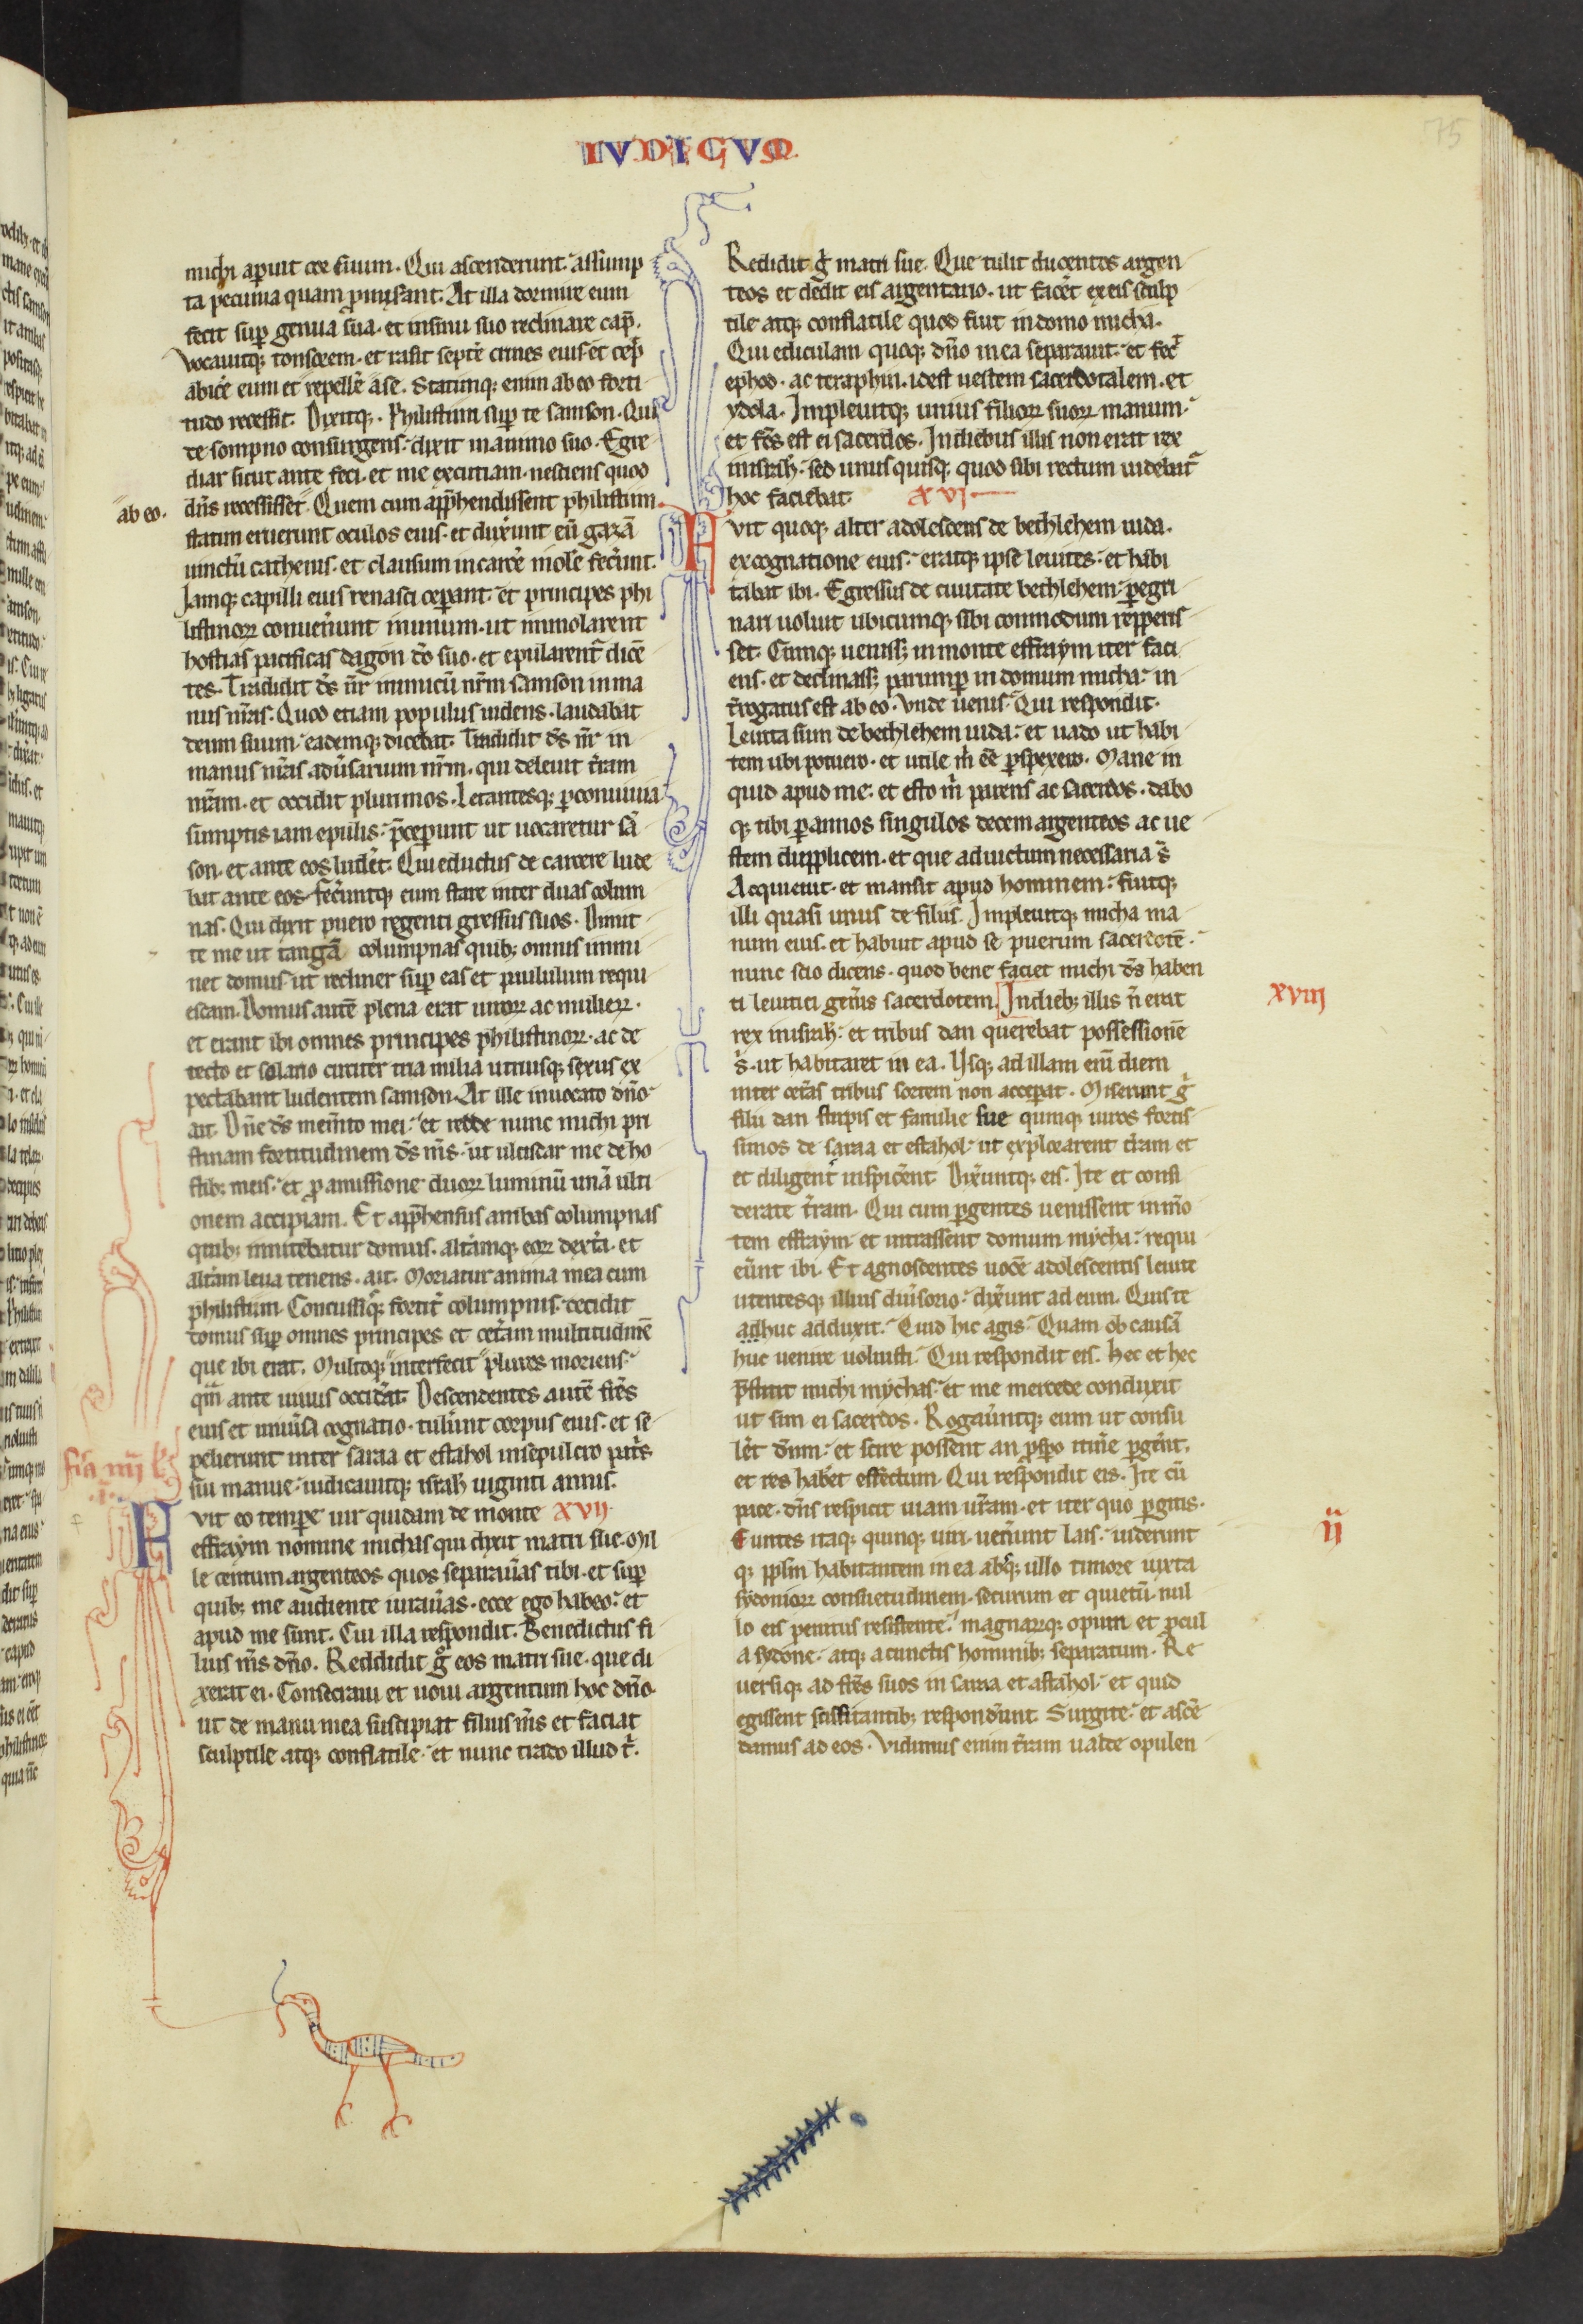 IVDICVM
75
michi aperuit cor suum. Qui ascenderunt assump
ta pecunia quam ꝓmiserant. At illa dormire eum
fecit suꝑ genua sua. et insinu suo reclinare cap̄.
vocauitqꝫ tonsorem. et rasit septē crines eius. et cep̄
abicē eum et repellē a se. Statimqꝫ enim ab eo forti
tudo recessit. Dixitqꝫ. Philistiim suꝑ te samson. Qui
de sompno consurgens. dixit in animo suo. Egre
diar sicut ante feci. et me excutiam. nesciens quod
ab eo.
dn̄s recessisset. Quem cum app̄hendissent philistiim
statim eruerunt oculos eius. et dux̄unt eū gazā
uinctū cathenis. et clausum in carcē molē fec̄unt.
Iamqꝫ capilli eius renasci ceꝑant. et principes phi
listinoꝝ conuen̄unt in unum. ut immolarent
hostias pacificas dagon dō suo. et epularent᷑ dicē
tes. Tradidit ds̄ nr̄ inimicū nr̄m samson in ma
nus nr̄as. Quod etiam populus uidens. laudabat
deum suum. eademqꝫ dicebat. Tradidit ds̄ nr̄ in
manus nr̄as. adūsarium nr̄m. qui deleuit t̄ram
nr̄am. et occidit plurimos. Letantesqꝫ ꝑ conuiuia
sumptis iam epulis. p̄ceꝑunt ut uocaretur sā
son. et ante eos ludēt. Qui eductus de carcere lude
bat ante eos. fec̄untqꝫ eum stare inter duas colum
nas. Qui dixit puero regenti gressus suos. Dimit
te me ut tangā columpnas quibꝫ omnis immi
net domus. ut recliner suꝑ eas et paululum requi
escam. Domus autē plena erat uiroꝝ ac mulieꝝ.
et erant ibi omnes principes philistinoꝝ. ac de
tecto et solario circiter tria milia utriusqꝫ sexus ex
pectabant ludentem samson. At ille inuocato dn̄o
ait. Dn̄e ds̄ mem̄to mei. et redde nunc michi pri
stinam fortitudinem ds̄ ms̄. ut ulciscar me de ho
stibꝫ meis. et ꝓ amissione duoꝝ luminū unā ulti
onem accipiam. Et app̄hensus ambas columpnas
quibꝫ innitebatur domus. alt̄amqꝫ eoꝝ dext̄a. et
alt̄am leua tenens. ait. Moriatur anima mea cum
philistiim. Concussisqꝫ fortit̄ columpnis. cecidit
domus suꝑ omnes principes et cet̄am multitudinē
que ibi erat. Multoqꝫ interfecit plures moriens.
qm̄ ante uiuus occid̄at. Descendentes autē fr̄es
eius et uniūsa cognatio. tul̄unt corpus eius. et se
pelierunt inter saraa et estahol in sepulcro pat̄s
sui manue. iudicauitqꝫ isrl̄ uiginti annis.
Fvit eo tempore uir quidam de monte XVII
effraym nomine michas qui dixit matri sue. Mil
le centum argenteos quos separaūas tibi. et suꝑ
quibꝫ me audiente iuraūas. ecce ego habeo. et
apud me sunt. Cui illa respondit. Benedictus fi
lius ms̄ dn̄o. Reddidit g̊ eos matri sue. que di
xerat ei. Consecraui et uoui argentum hoc dn̄o
ut de manu mea suscipiat filius ms̄ et faciat
sculptile atqꝫ conflatile. et nunc trado illud t̄.
Redidit g̊ matri sue. Que tulit ducentos argen
teos et dedit eis argentario. ut facēt ex eis sculp
tile atqꝫ conflatile quod fuit in domo micha.
Qui ediculam quoqꝫ dn̄o in ea separauit. et fec̄
ephod. ac teraphin. idest uestem sacerdotalem. et
ydola. Impleuitqꝫ unius filioꝝ suoꝝ manum.
et fcs̄ est ei sacerdos. In diebus illis non erat rex
in isrl̄. sed unus quisqꝫ quod sibi rectum uidebat᷑
hoc faciebat. XVI
Fvit quoqꝫ alter adolescens de bethlehem iuda.
ex cognatione eius. eratqꝫ ipse leuites. et habi
tabat ibi. Egressus de ciuitate bethlehem ꝑegri
nari uoluit ubicumqꝫ sibi commodum repperis
set. Cumqꝫ uenissꝫ in monte effraym iter faci
ens. et declinassꝫ parumꝑ in domum micha. in
t̄rogatus est ab eo. Vnde uenis. Qui respondit.
Leuita sum de bethlehem iuda. et uado ut habi
tem ubi potuero. et utile m̄ eē ꝑspexero. Mane in
quid apud me. et esto m̄ parens ac sacerdos. dabo
qꝫ tibi ꝑ annos singulos decem argenteos ac ue
stem dupplicem. et que ad uictum necessaria s̄
Acquieuit. et mansit apud hominem. fuitqꝫ
illi quasi unus de filiis. Impleuitqꝫ micha ma
num eius. et habuit apud se puerum sacerdotē.
nunc scio dicens. quod bene faciet michi ds̄ haben
ti leuitici gen̄is sacerdotem. In diebꝫ illis n̄ erat
XVIII
rex in isrl̄. et tribus dan querebat possessionē
s̄. ut habitaret in ea. Usqꝫ ad illam enī diem
inter cet̄as tribus sortem non acceꝑat. Miserunt g̊
filii dan stirpis et familie sue quinqꝫ uiros fortis
simos de saraa et estahol. ut explorarent t̄ram et
et diligent̄ inspic̄ent. Dix̄untqꝫ eis. Ite et consi
derate t̄ram. Qui cum ꝑgentes uenissent in mō
tem effraym et intrassent domum mycha. requi
eūnt ibi. Et agnoscentes uocē adolescentis leuite
utentesqꝫ illius diūsorio. dix̄unt ad eum. Quis te
adhuc adduxit. Quid hic agis. Quam ob causā
huc uenire uoluisti. Qui respondit eis. Hec et hec
p̄stitit michi mychas. et me mercede conduxit
ut sim ei sacerdos. Rogaūntqꝫ eum ut consu
lēt dn̄m. et scire possent an ꝓspo itin̄e ꝑgēnt.
et res habēt effectum. Qui respondit eis. Ite cū
pace. dn̄s respicit uiam ur̄am. et iter quo ꝑgitis.
II
Euntes itaqꝫ quinqꝫ uiri. uen̄unt lais. uiderunt
qꝫ ppl̄m habitantem in ea absqꝫ ullo timore iuxta
sydonioꝝ consuetudinem. securum et quietū. nul
lo eis penitus resistente. magnaꝝqꝫ opum et ꝓcul
a sydone. atqꝫ a cunctis hominibꝫ separatum. Re
uersiqꝫ ad fr̄es suos in saraa et astahol. et quid
egissent sciscitantibꝫ respond̄unt. Surgite. et ascē
damus ad eos. Vidimus enim t̄ram ualde opulen